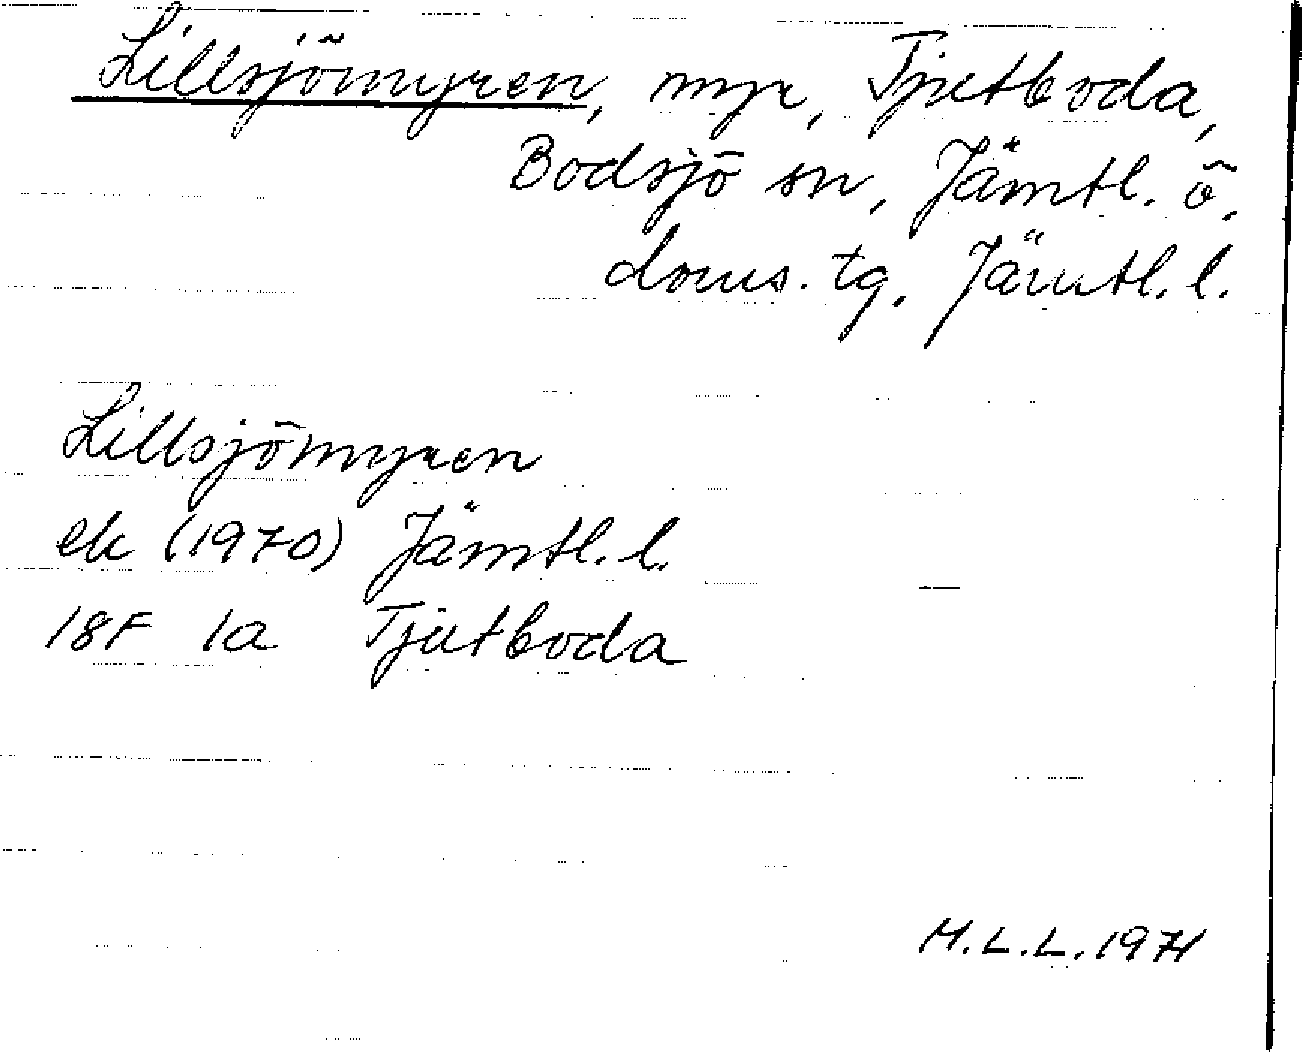 Lillsjömyren, myr, Tjutboda,
Bodsjö sn, Jämtl. ö.
doms. tg. Jämtl. l.
Lillsjömyren
ek (1970) Jämtl. l.
18F 1a Tjutboda
M.L.L. 1971